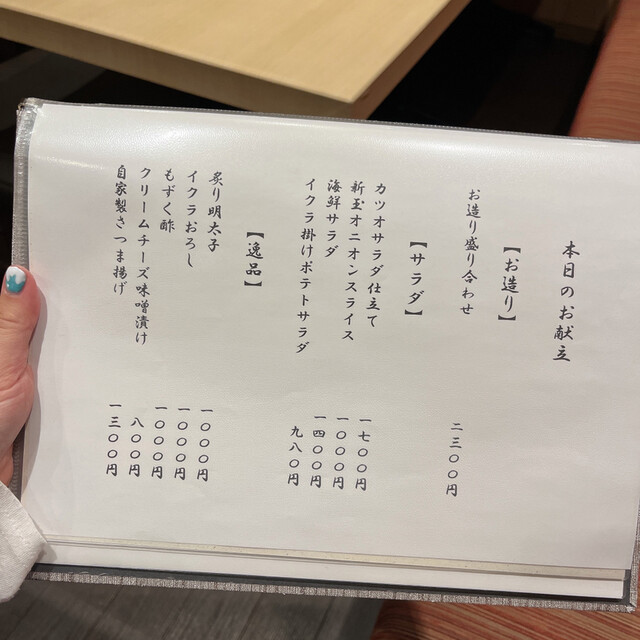 本日のお献立
【お造り】
お造り盛り合わせ 二三〇〇円
【サラダ】
カツオサラダ仕立て 一七〇〇円
新玉オニオンスライス 一〇〇〇円
海鮮サラダ 一四〇〇円
イクラ掛けポテトサラダ 九八〇円
【逸品】
炙り明太子 一〇〇〇円
イクラおろし 一〇〇〇円
もずく酢 一〇〇〇円
クリームチーズ味噌漬け 八〇〇円
自家製さつま揚げ 一三〇〇円